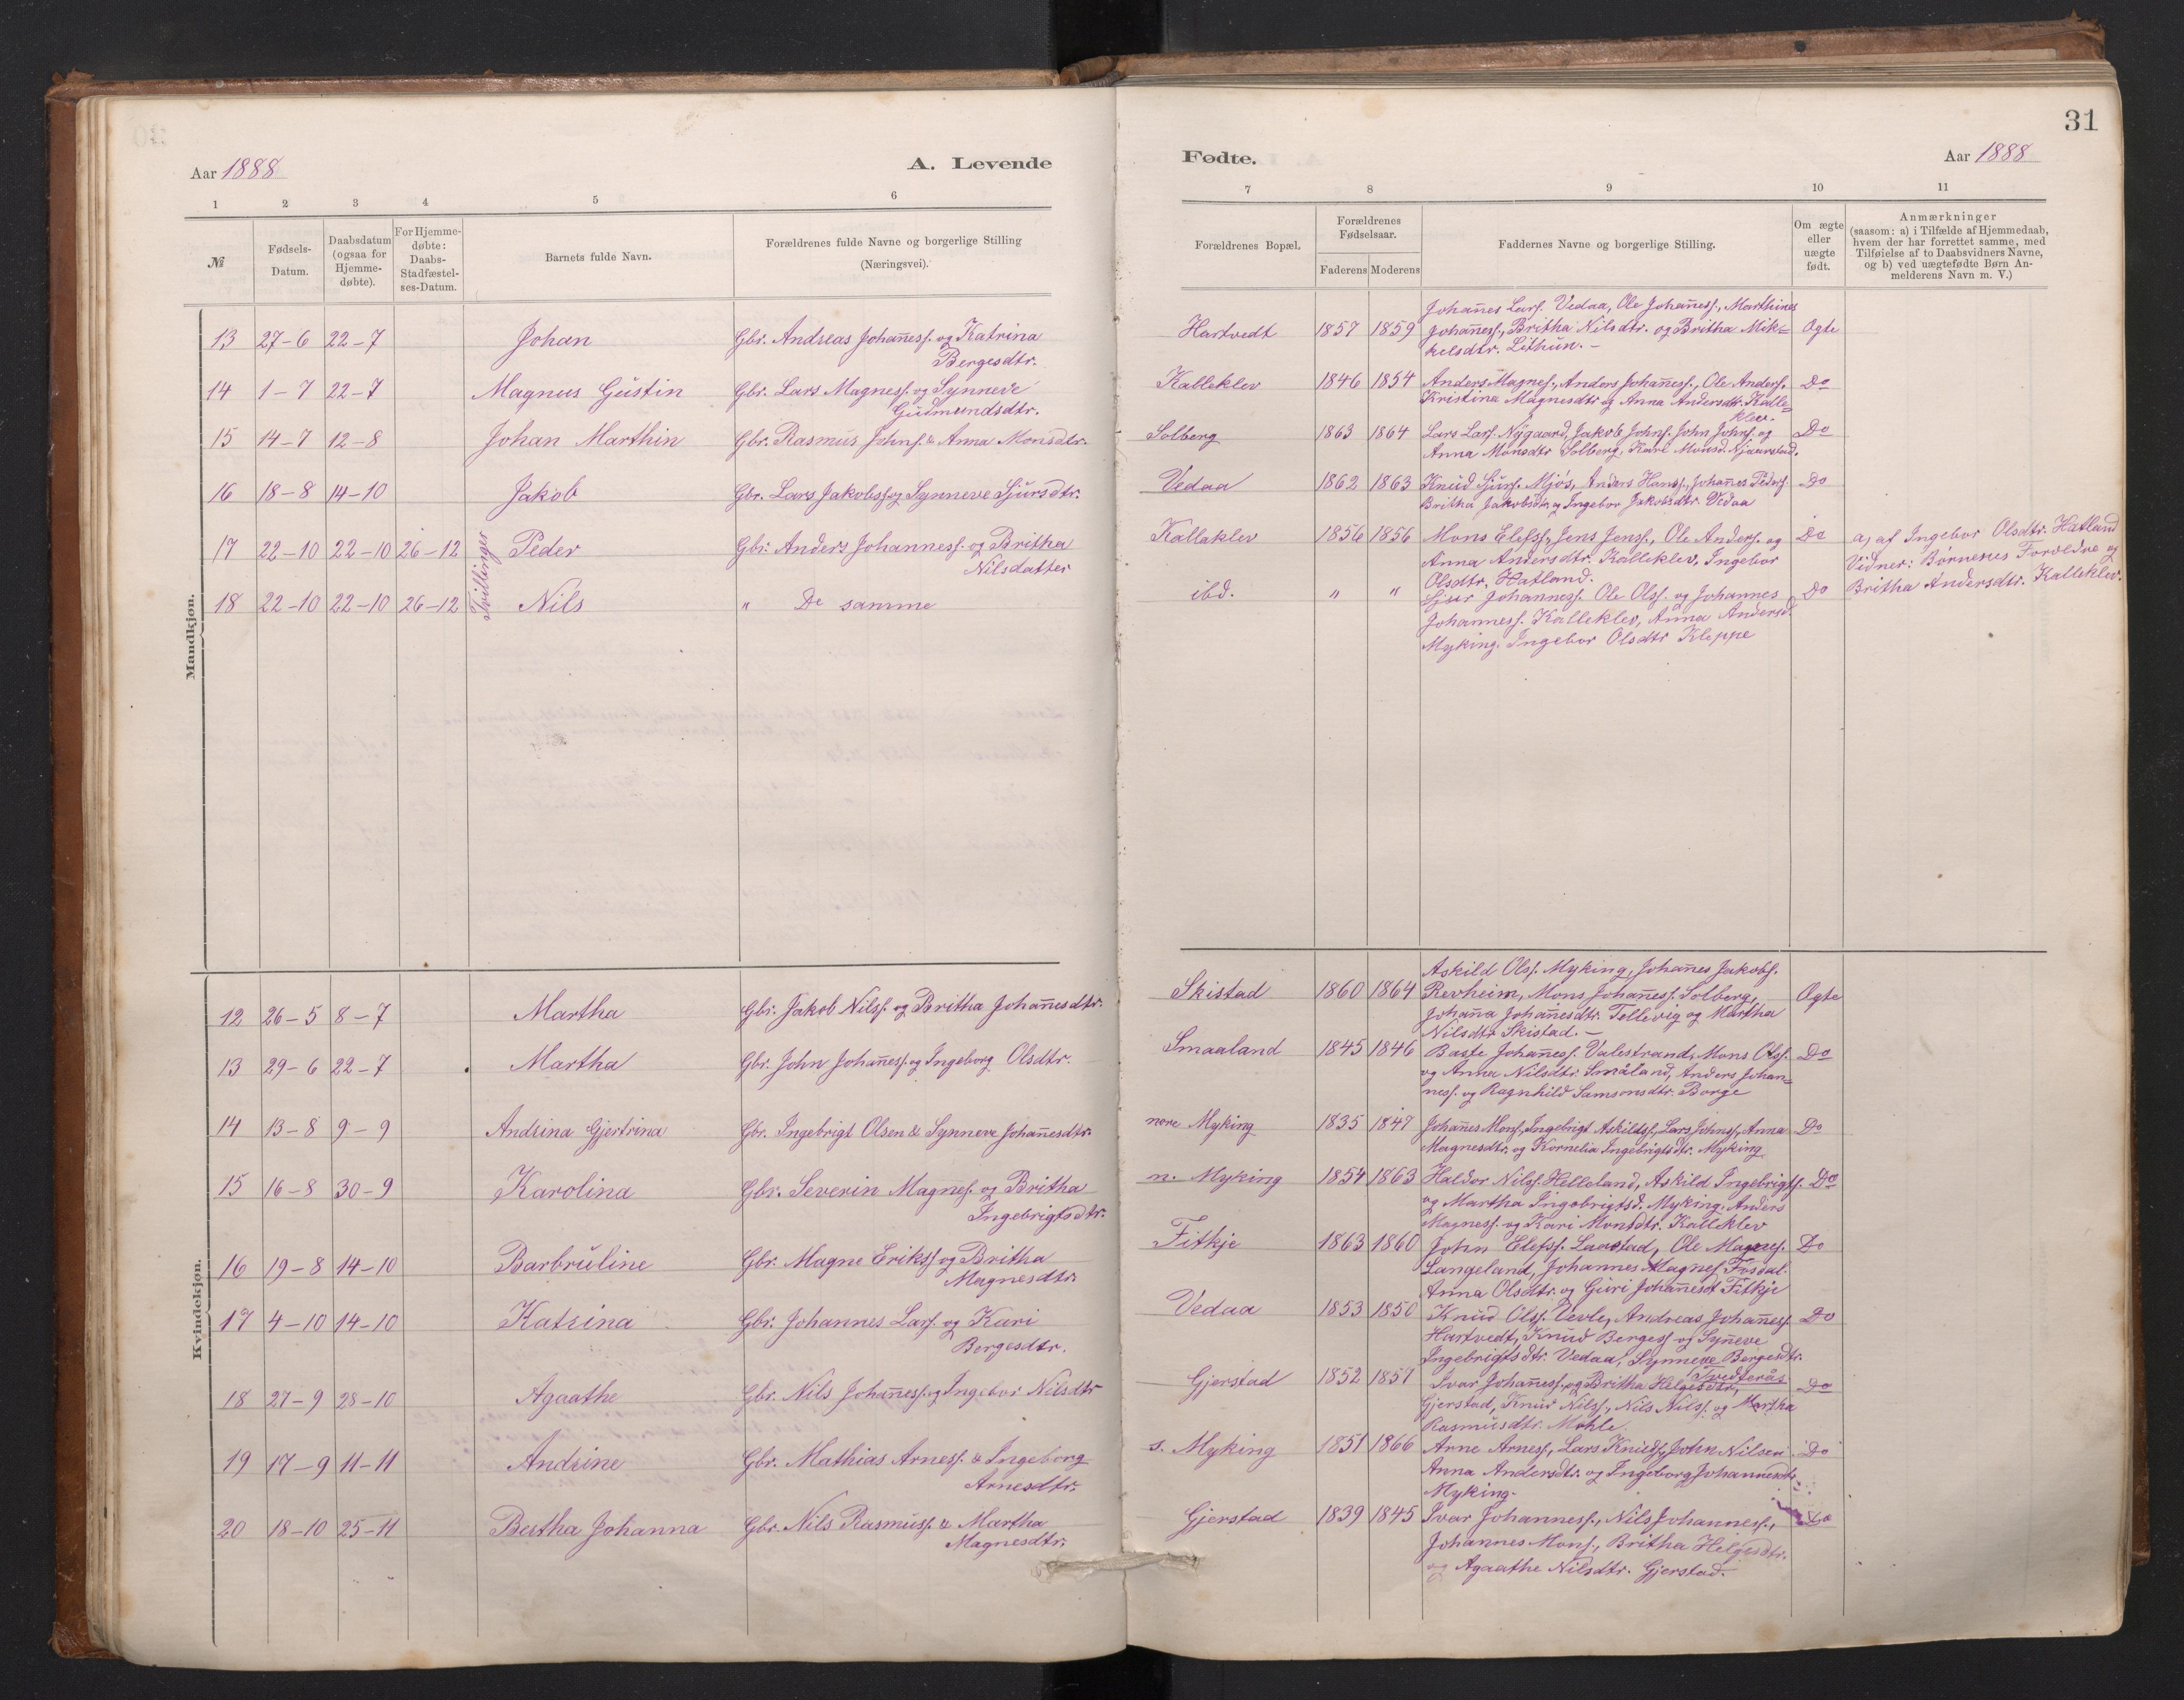 31
Aar 1888
A. Levende
Fødte.
Aar 1888
1 2 3 4 5 6 7 8 9 10 11
№
Fødsels-
Datum.
Daabsdatum
(ogsaa for
Hjemme-
døbte).
For Hjemme-
døbte:
Daabs-
Stadfæstel-
ses-Datum.
Barnets fulde Navn.
Forældrenes fulde Navne og borgerlige Stilling
(Næringsvei).
Forældrenes Bopæl.
Forældrenes
Fødselsaar.
Faderens Moderens
Faddernes Navne og borgerlige Stilling.
Om ægte
eller
uægte
født.
Anmærkninger
(saasom: a) i Tilfælde af Hjemmedaab,
hvem der har forrettet samme, med
Tilføielse af to Daabsvidners Navne,
og b) ved uægtefødte Børn An-
melderens Navn m. V.)
Mandkjøn.
13 27-6 22-7 Johan Gbr. Andreas Johañess. og Katrina
Bergesdtr.
Hartvedt 1857 1859
Johañes Lars. Vedaa, Ole Johañess., Marthines
Johañess., Britha Nilsdtr. og Britha Mik-
kelsdtr. Lithun. -
Ogte
14 1-7 22-7 Magnus Gustin Gbr. Lars Magness. og Synneve
Gudmundsdtr.
Kalleklev 1846 1854
Anders Magness., Anders Johañess., Ole Anders.
Kristina Magnesdtr og Anna Andersdtr. Kalle-
klev.
Do
15 14-7 12-8 Johan Marthin Gbr. Rasmus Johns. & Anna Monsdtr.
Solberg 1863 1864
Lars Lars. Nygaard, Jakob Johns. John Johns. og
Anna Monsdtr Solberg, Kari Monsd. Njaarstad.
Do
16 18-8 14-10 Jakob Gbr. Lars Jakobs. og Synneve Sjursdtr.
Vedaa 1862 1863
Knud Sjurs. Mjøs, Anders Hanss., Johañes Peders
Britha Jakobsdtr og Ingebor Jakobsdtr Vedaa
Do
17 22-10 22-10 26-12 Tvillinger Peder Gbr. Anders Johanness. og Britha
Nilsdatter
Kallaklev 1856 1856
Mons Elefss., Jens Jens., Ole Anders. og
Anna Andersdtr. Kalleklev, Ingebor
Olsdtr. Hatland.
Do
a) af Ingebor Olsdtr. Hatland
Vidner: Børnenes Forældre og
Britha Andersdtr. Kalleklev.
18 22-10 22-10 26-12 Nils " De samme
ibd. " "
Johanness. Ole Olss. og Johannes
Johanness. Kalleklev, Anna Andersd.
Myking. Ingebor Olsdtr Kleppe
Do
Kvindekjøn.
12 26-5 8-7 Martha Gbr. Jakob Nilss. og Britha Johañesdtr.
Skistad 1860 1864
Askild Ols. Myking, Johañes Jakobs.
Revheim, Mons Johañess. Solberg,
Johaña Johañesdtr. Tellevig og Martha
Nilsdtr Skistad. -
Ogte
13 29-6 22-7 Martha Gbr. John Johañess. og Ingeborg Olsdtr.
Smaaland 1845 1846
Baste Johañess. Valestrand, Mons Ols.
og Anna Nilsdtr. Småland, Anders Johan-
ness. og Ragnhild Samsonsdtr. Borge
Do
14 13-8 9-9 Andrina Gjertrina Gbr. Ingebrigt Olsen & Synneve Johañesdtr.
nore Myking 1835 1847
Johañes Mons., Ingebrigt Askilds., Lars Johns., Anna
Magnesdtr. og Kornelia Ingebrigtsdtr. Myking
Do
15 16-8 30-9 Karolina Gbr. Severin Magness. og Britha
Ingebrigtsdtr.
n. Myking 1854 1863
Haldor Nils. Helleland, Askild Ingebrigts.
og Martha Ingebrigtsd. Myking. Anders
Magness. og Kari Monsdtr. Kalleklev
Do
16 19-8 14-10 Barbruline Gbr. Magne Erikss og Britha
Magnesdtr
Fitkje 1863 1860
John Elefss. Laastad, Ole Magnes.
Langeland, Johannes Magnes. Fosdal.
Anna Olsdtr. og Guri Johañesdt Fitkje
Do
17 4-10 14-10 Katrina Gbr. Johannes Lars. og Kari
Bergesdtr.
Vedaa 1853 1850
Knud Olss. Vevle, Andreas Johañess.
Hartvedt, Knud Bergess. og Syñeve
Ingebrigtsdtr. Vedaa, Synneve Bergesdtr.
Tvedterås
Do
18 27-9 28-10 Agaathe Gbr. Nils Johañess. og Ingebor Nilsdtr
Gjerstad 1852 1857
Ivar Johañess. og Britha Helgesdtr,
Gjerstad, Knut Nilss., Nils Nilss. og Martha
Rasmusdtr. Mohle
Do
19 17-9 11-11 Andrine Gbr. Mathias Arness. & Ingeborg
Arnesdtr.
s. Myking 1851 1866
Arne Arness., Lars Knuds., John Nilsen
Anna Andersdtr. og Ingeborg Johannesdtr.
Myking.
Do
20 18-10 25-11 Bertha Johanna Gbr. Nils Rasmuss. & Martha
Magnesdtr.
Gjerstad 1839 1845
Ivar Johanness., Nils Johanness.,
Johannes Mons., Britha Helgesdtr.
og Agaathe Nilsdtr. Gjerstad.
Do